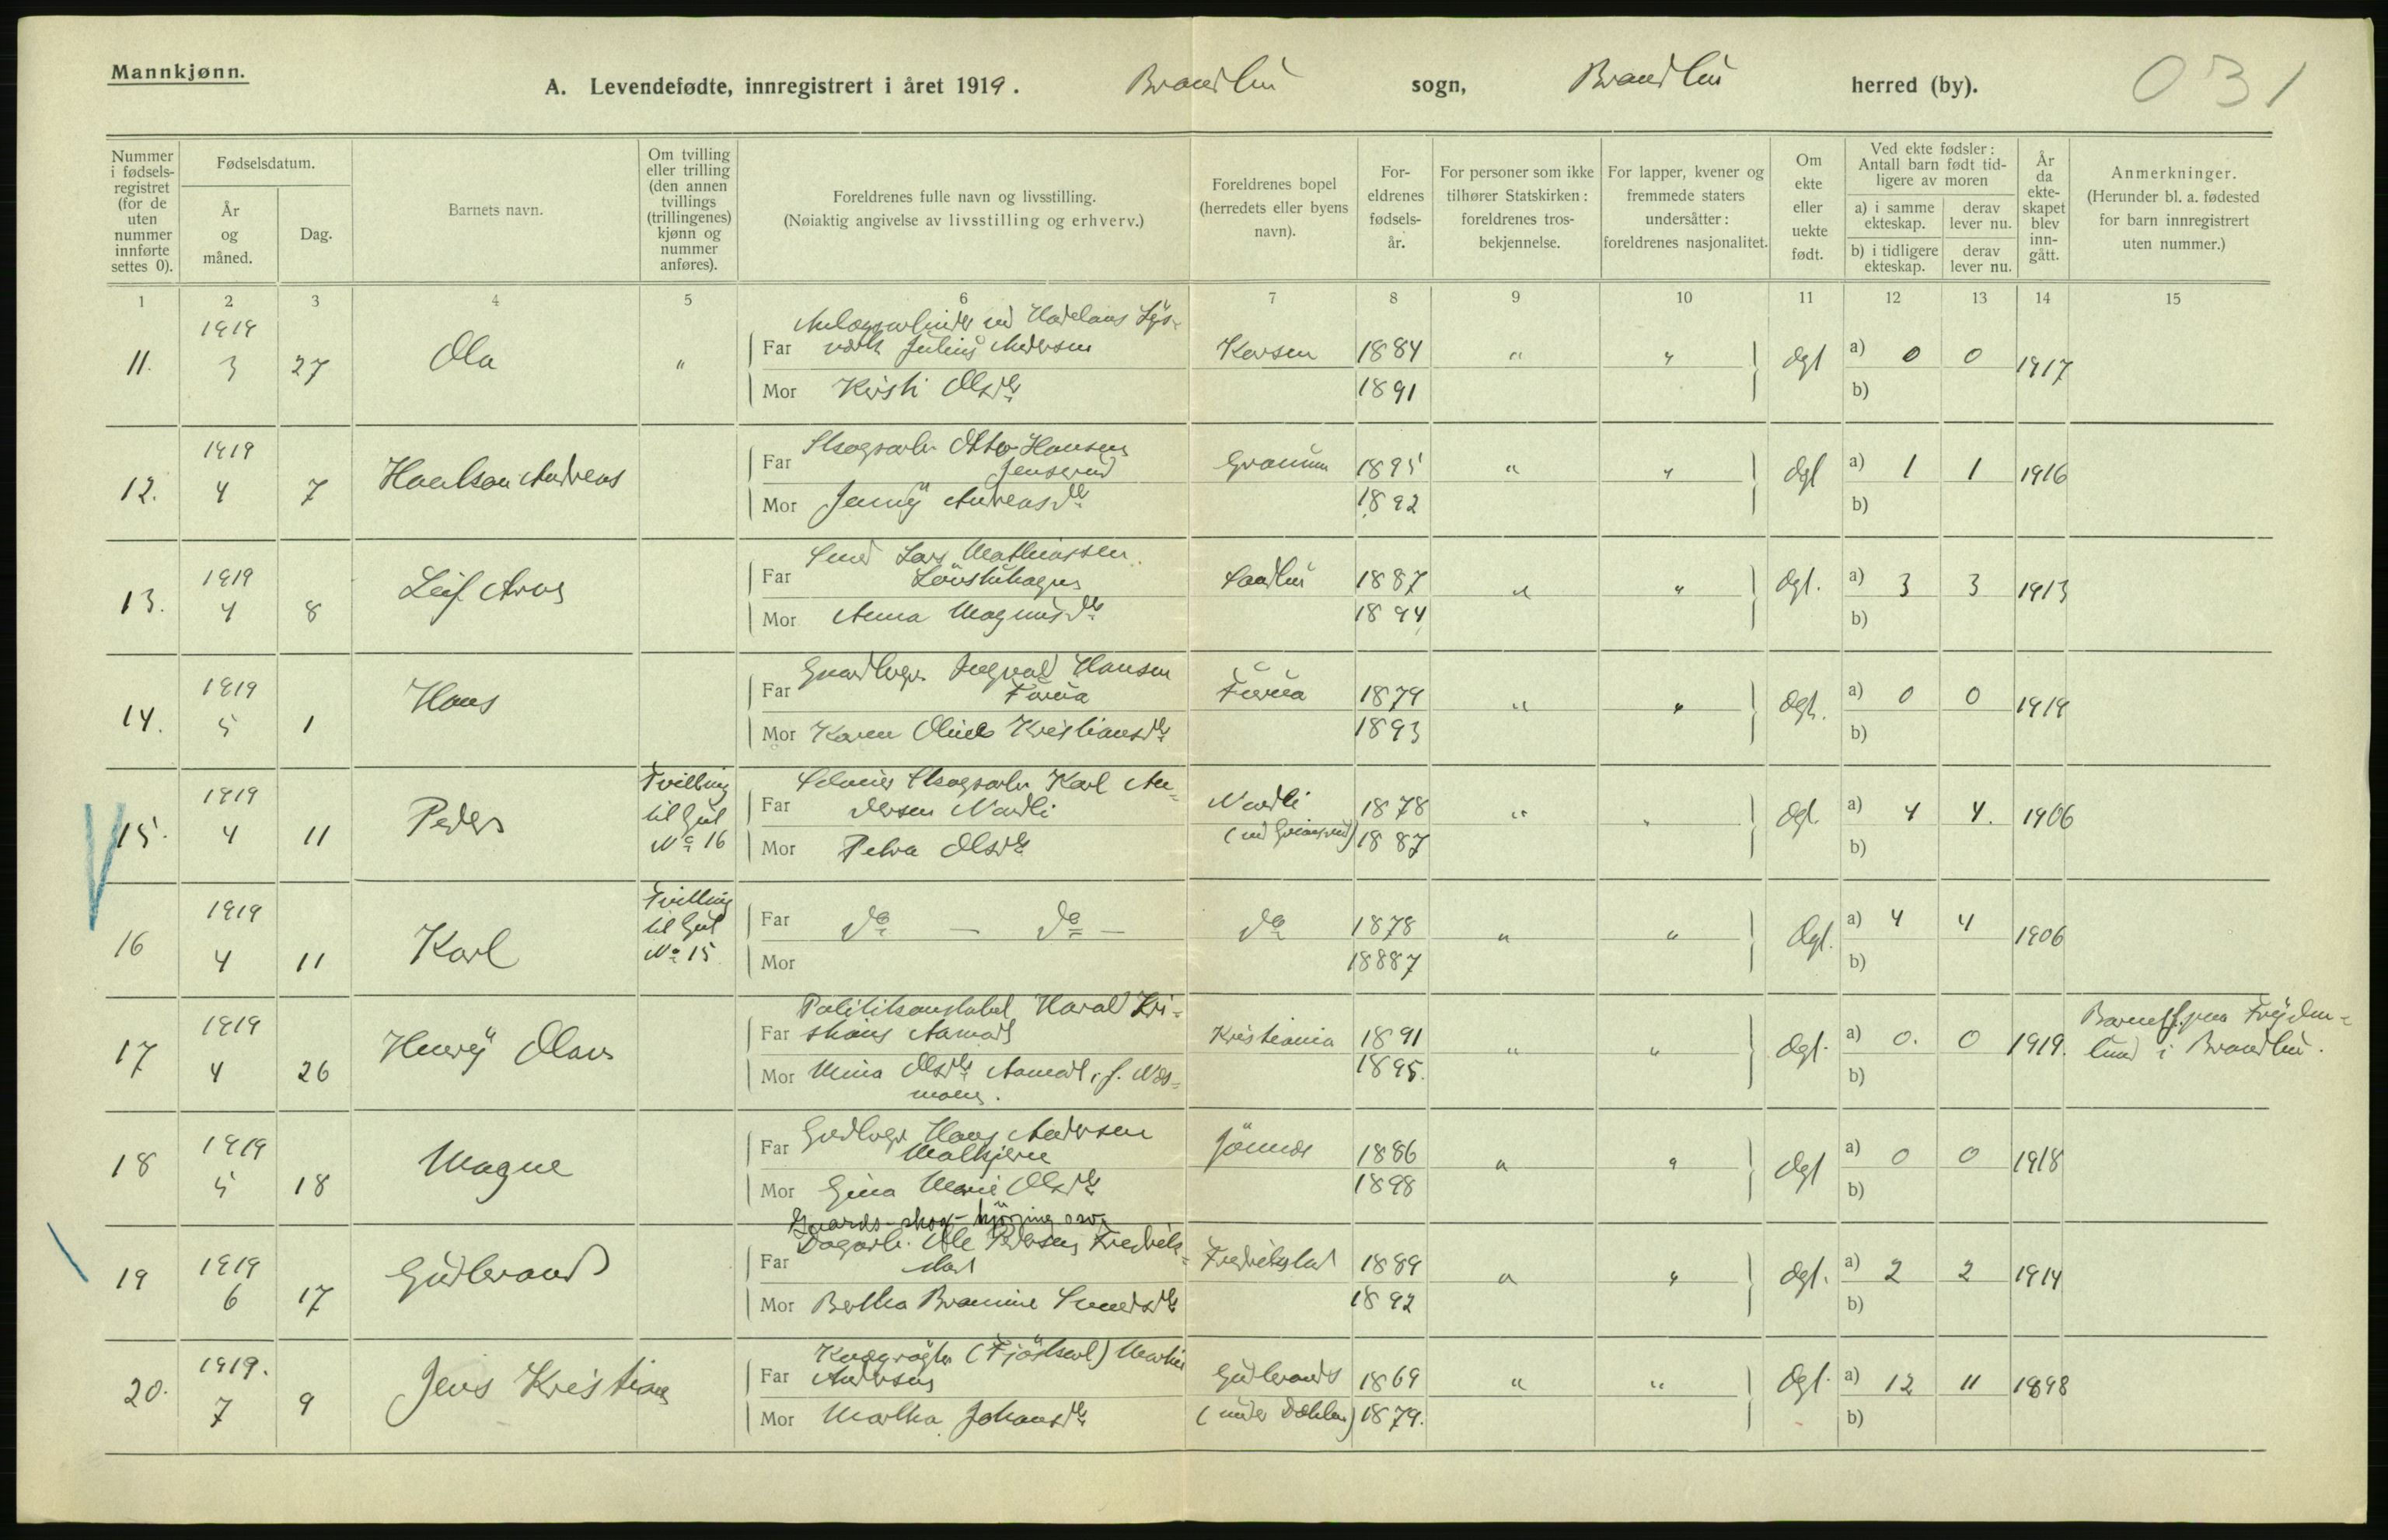 Mannkjønn.
A. Levendefødte, innregistrert i året 1919. Brandbu sogn, Brandbu herred (by). 031
Nummer i fødselsregistret (for de uten nummer innførte settes 0).
Fødselsdatum.
År og måned.
Dag.
Barnets navn.
Om tvilling eller trilling (den annen tvillings (trillingenes) kjønn og nummer anføres).
Foreldrenes fulle navn og livsstilling.
(Nøiaktig angivelse av livsstilling og erhverv.)
Foreldrenes bopel (herredets eller byens navn).
Foreldrenes fødselsår.
For personer som ikke tilhører Statskirken: foreldrenes trosbekjennelse.
For lapper, kvener og fremmede staters undersåtter: foreldrenes nasjonalitet.
Om ekte eller uekte født.
Ved ekte fødsler: Antall barn født tidligere av moren
a) i samme ekteskap. derav lever nu.
b) i tidligere ekteskap. derav lever nu.
År da ekteskapet blev inngått.
Anmerkninger.
(Herunder bl. a. fødested for barn innregistrert uten nummer.)
1 2 3 4 5 6 7 8 9 10 11 12 13 14 15
11. 1919 3 27 Ola "
Anlægsarbeider ved Hadelans Lys-
Far værk Julius Andersen 1884 " " Ægt a) 0 0 1917
Mor Kersti Olsdr 1891 b)
12. 1919 4 7 Andreas
Far Skogsarb. Otto Hansen
Jenserud Granum 1895 " " Ægt a) 1 1 1916
Mor Jenny Andreasdr 1892 b)
13. 1919 4 8 Leif Arne
Far Smed Lars Mathiassen
1887 " " Ægt. a) 3 3 1913
Mor Anna Magnusdr 1894 b)
14. 1919 5 1 Hans
Far Gaardbrger Ingvald Hansen
1879 " " Ægt. a) 0 0 1919
Mor Karen Oline Kristiansdr 1893 b)
15. 1919 4 11 Peder Tvilling til Gut No 16
Far Skogsarb. Karl An-
dersen Nordli Nordli 1878 " " Ægt. a) 4 4. 1906
Mor Petra Olsdr 1887 b)
16 1919 4 11 Karl Tvilling til Gut No 15
Far do — do — do 1878 " " Ægt. a) 4 4 1906
Mor 18887 b)
17 1919 4 26 Henry Olav
Politikonstabel Harald Kri-
Far stians Aamodt Kristiania 1891 " " Ægt. a) 0. 0 1919.
Mor Mina Olsdr Aamodt, f. Næs-
moen. 1895. b)
Barnet f. paa Frydenlund i Brandbu.
18 1919 5 18 Magne
Far Grdbrger Hans Andersen
1886 " " Ægt a) 0 0 1918
Mor Gina Marie Olsdr 1898 b)
19 1919 6 17 Gudbrand
Gaards- skog- kjöring osv.
Far Dagarb. Ole Pedersen Fredrik-
stad Fredrikstad 1889 " " Ægt. a) 2 2 1914
Mor Bertha Bramine Svendsdr 1892 b)
20. 1919. 7 9 Jens Kristian
Kvægrögter (Fjöskarl) Martin
Far Andersen 1869 " " Ægt. a) 12 11 1898
Mor Martha Johansdr (under Dæhlen) 1879. b)